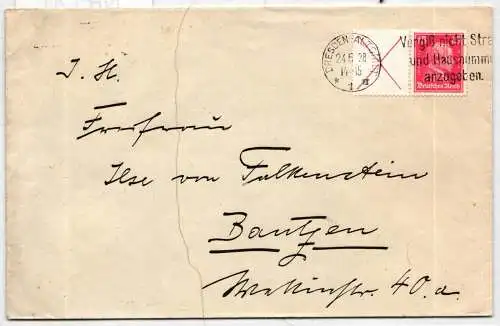 DRESDEN-ALTST.
24.6.28
Vergiß nicht Stra
und Hausnumm
anzugeben.
Deutsches Reich
I. H.
Freifrau
Ilse von Falkenstein
Bautzen
40 a.